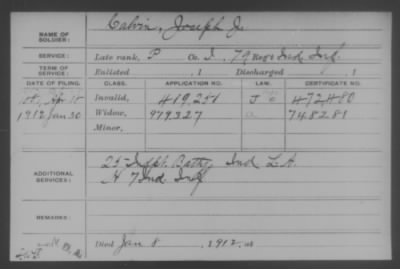 NAME OF SOLDIER: Calvin, Joseph J.
SERVICE: Late rank, P Co. I, 79 Reg't Ind. Inf.
TERM OF SERVICE: Enlisted , 1 Discharged , 1
DATE OF FILING. CLASS. APPLICATION NO. LAW. CERTIFICATE NO.
Apr 18 Invalid, 419,251 J 472480
1912 Jan 30 Widow, 979327 748281
Minor,
ADDITIONAL SERVICES: 25 Indpt. Batty, Ind. L.A.
H 7 Ind Inf
REMARKS:
Died Jan 8, 1912, at